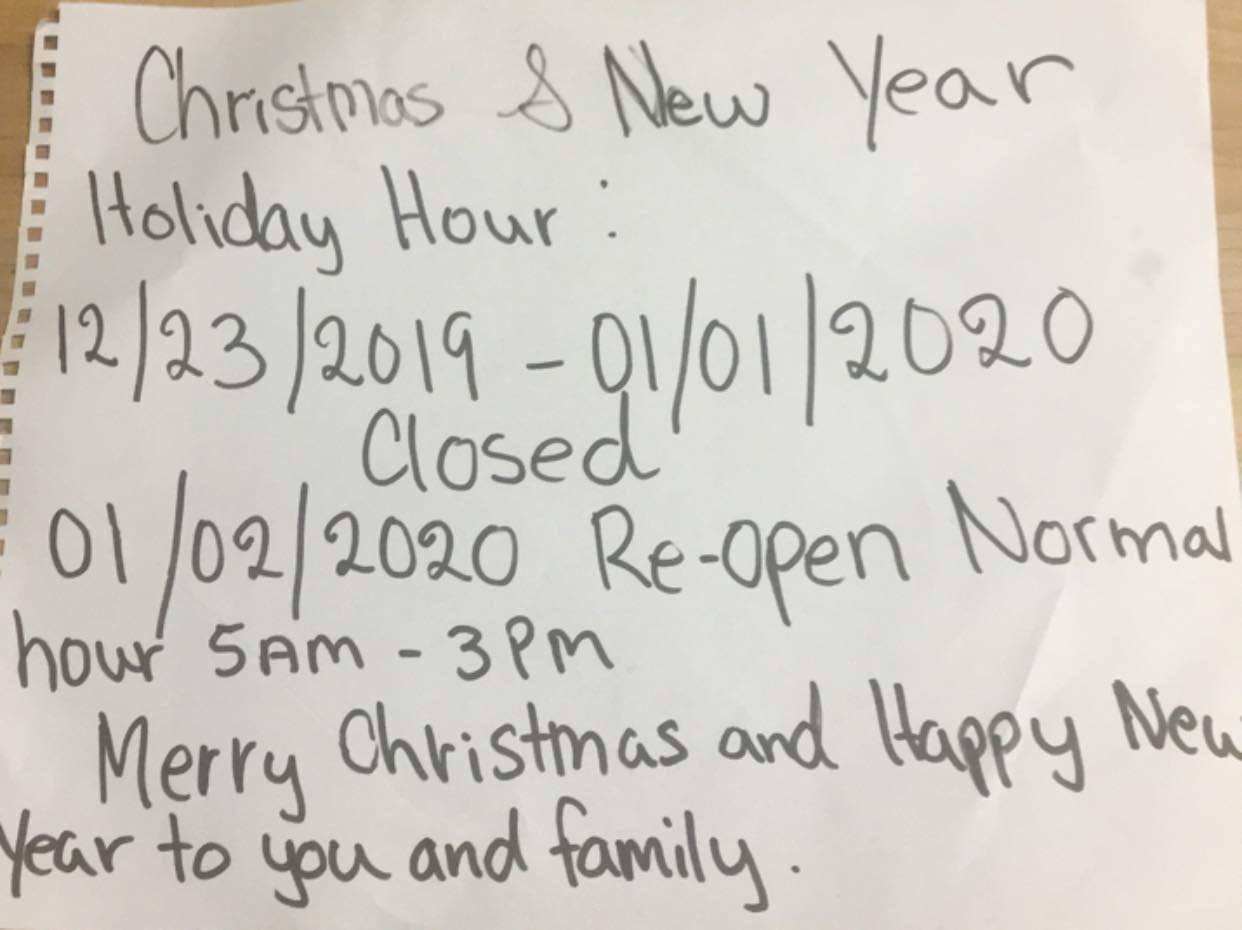 Christmas & New Year
Holiday Hour :
12/23/2019 - 01/01/2020
Closed
01/02/2020 Re-open Normal
hour 5AM - 3PM
Merry Christmas and Happy New
Year to you and family.